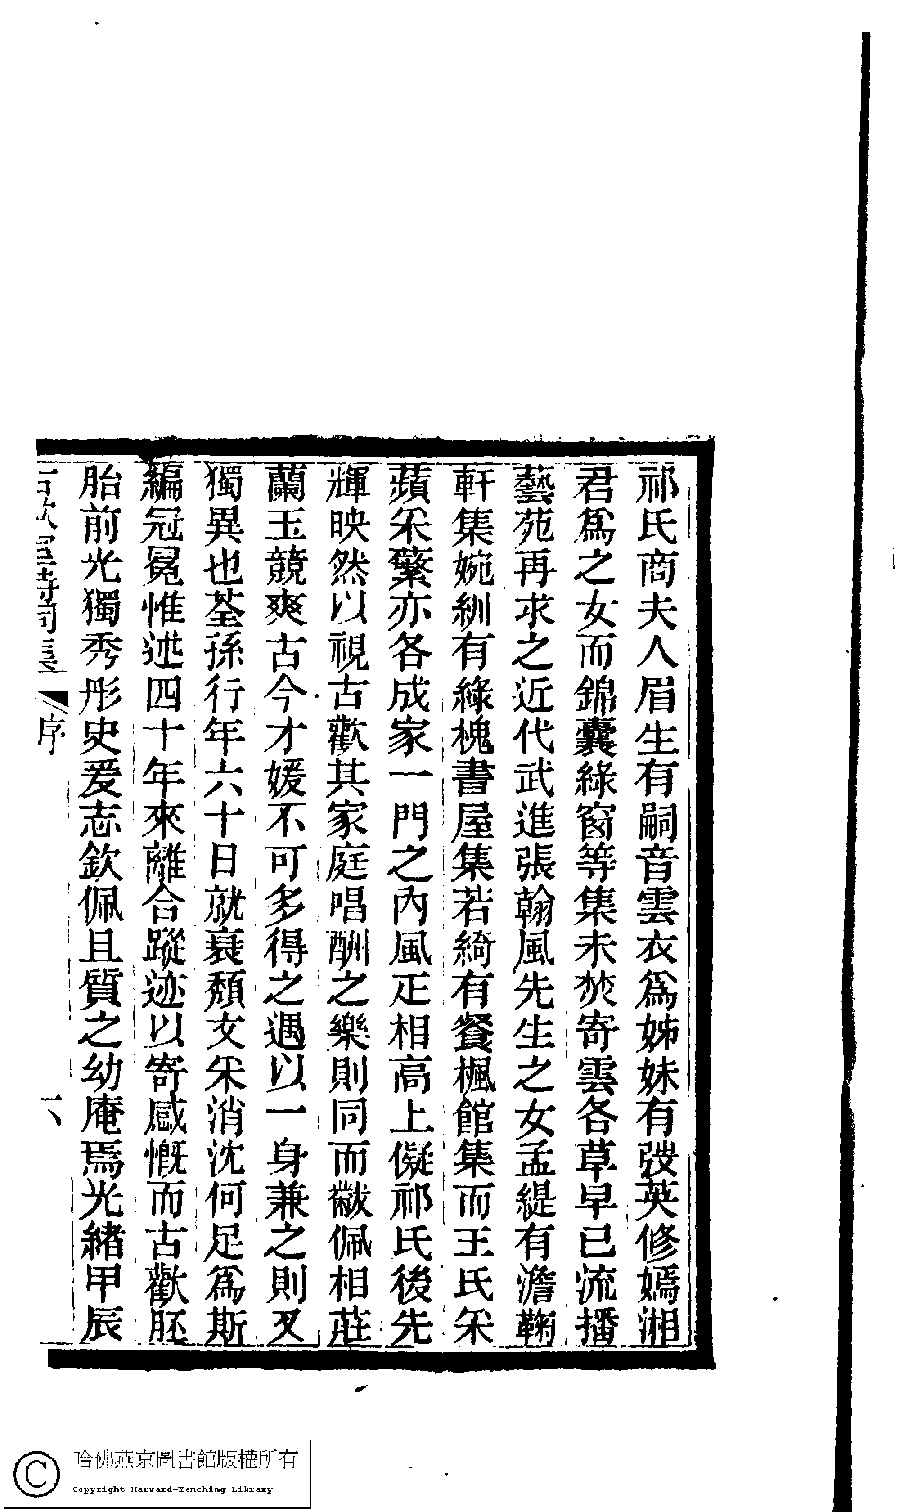 祁氏商夫人眉生有嗣音雲衣爲姊妹有弢英修嫣湘
君爲之女而錦囊綠窗等集未焚寄雲各草早已流播
藝苑再求之近代武進張翰風先生之女孟緹有澹鞠
軒集婉紃有綠槐書屋集若綺有餐楓館集而王氏采
蘋采蘩亦各成家一門之內風正相高上儗祁氏後先
輝映然以視古歡其家庭唱酬之樂則同而黻佩相莊
蘭玉競爽古今才媛不可多得之遇以一身兼之則又
獨異也荃孫行年六十日就衰頹文采消沈何足爲斯
編冠冕惟述四十年來離合蹤迹以寄感慨而古歡胚
胎前光獨秀彤史爰志欽佩且質之幼庵焉光緒甲辰
古歡室詩詞集 序 六
哈佛燕京圖書館版權所有
Copyright Harvard-Yenching Library